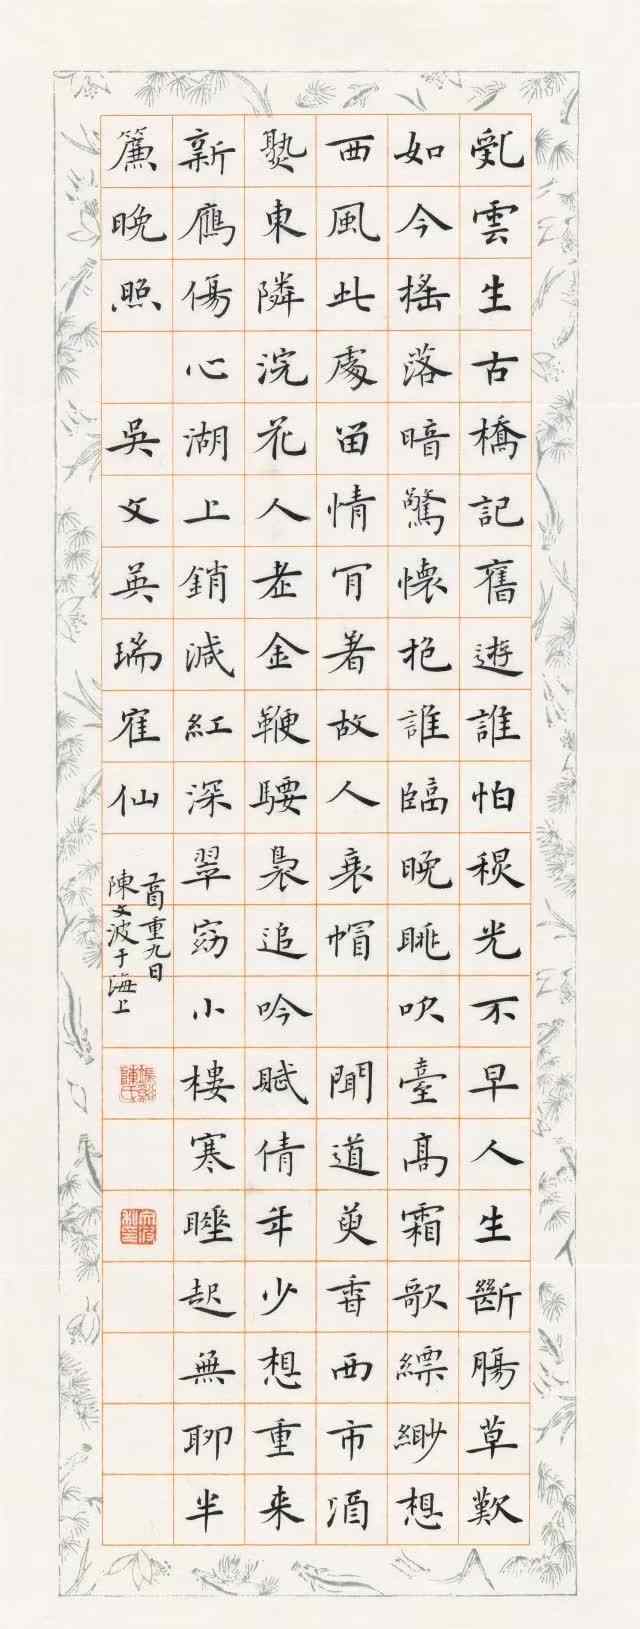 亂雲生古橋記舊遊誰怕秋光不早人生斷腸草歎
如今搖落暗驚懷抱誰臨晚眺吹臺髙霜歌縹緲想
西風此處留情肎著故人衰帽 聞道萸香西市酒
熟東隣浣花人老金鞭騕褭追吟賦倩年少想重来
新鴈傷心湖上銷減紅深翠窈小樓寒睡起無聊半
簾晚照 吳文英瑞隺仙
酉重九日
陳文波于海上